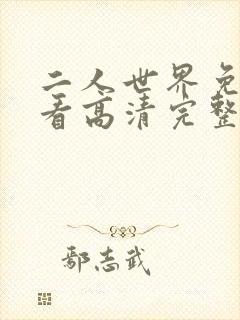 二人世界免
看高清完整
鄢志武